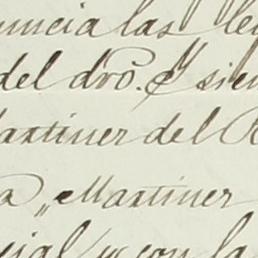 nuncia las le
del dro. y sien
Martiner del R
a „ Martiner
cial y con la